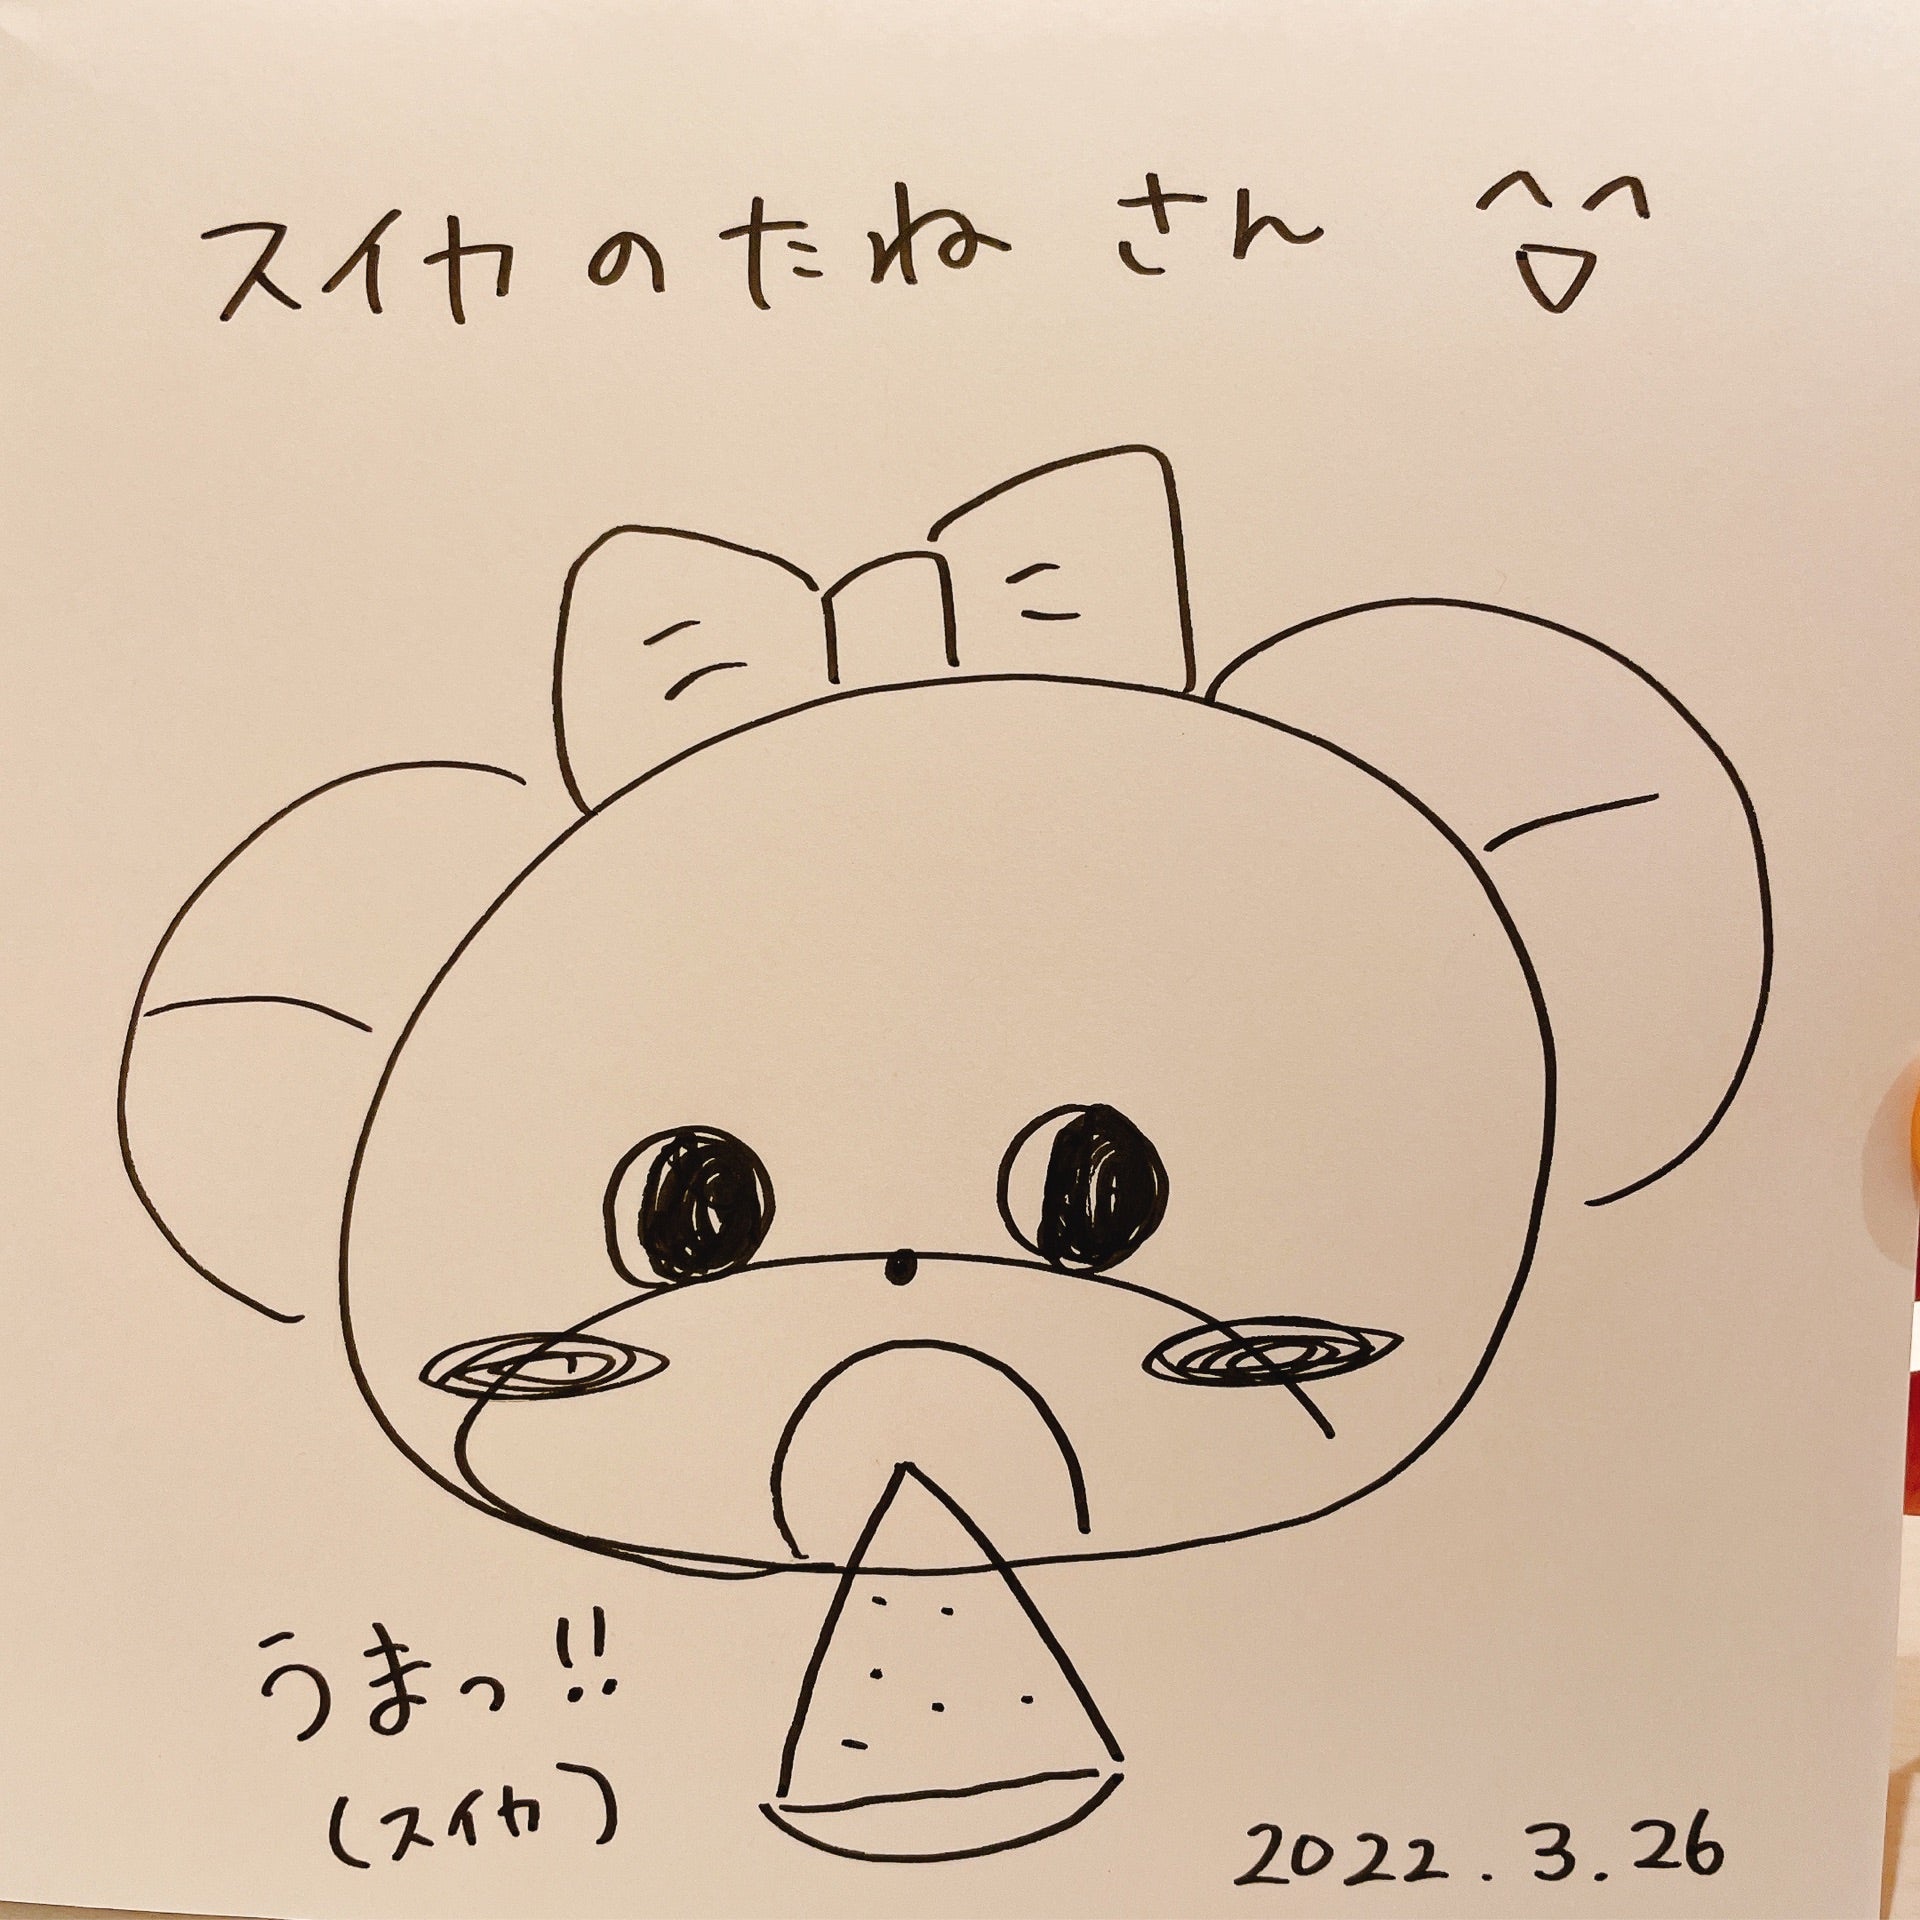 スイカのたね さん ^▽^
うまっ!!
(スイカ)
2022.3.26